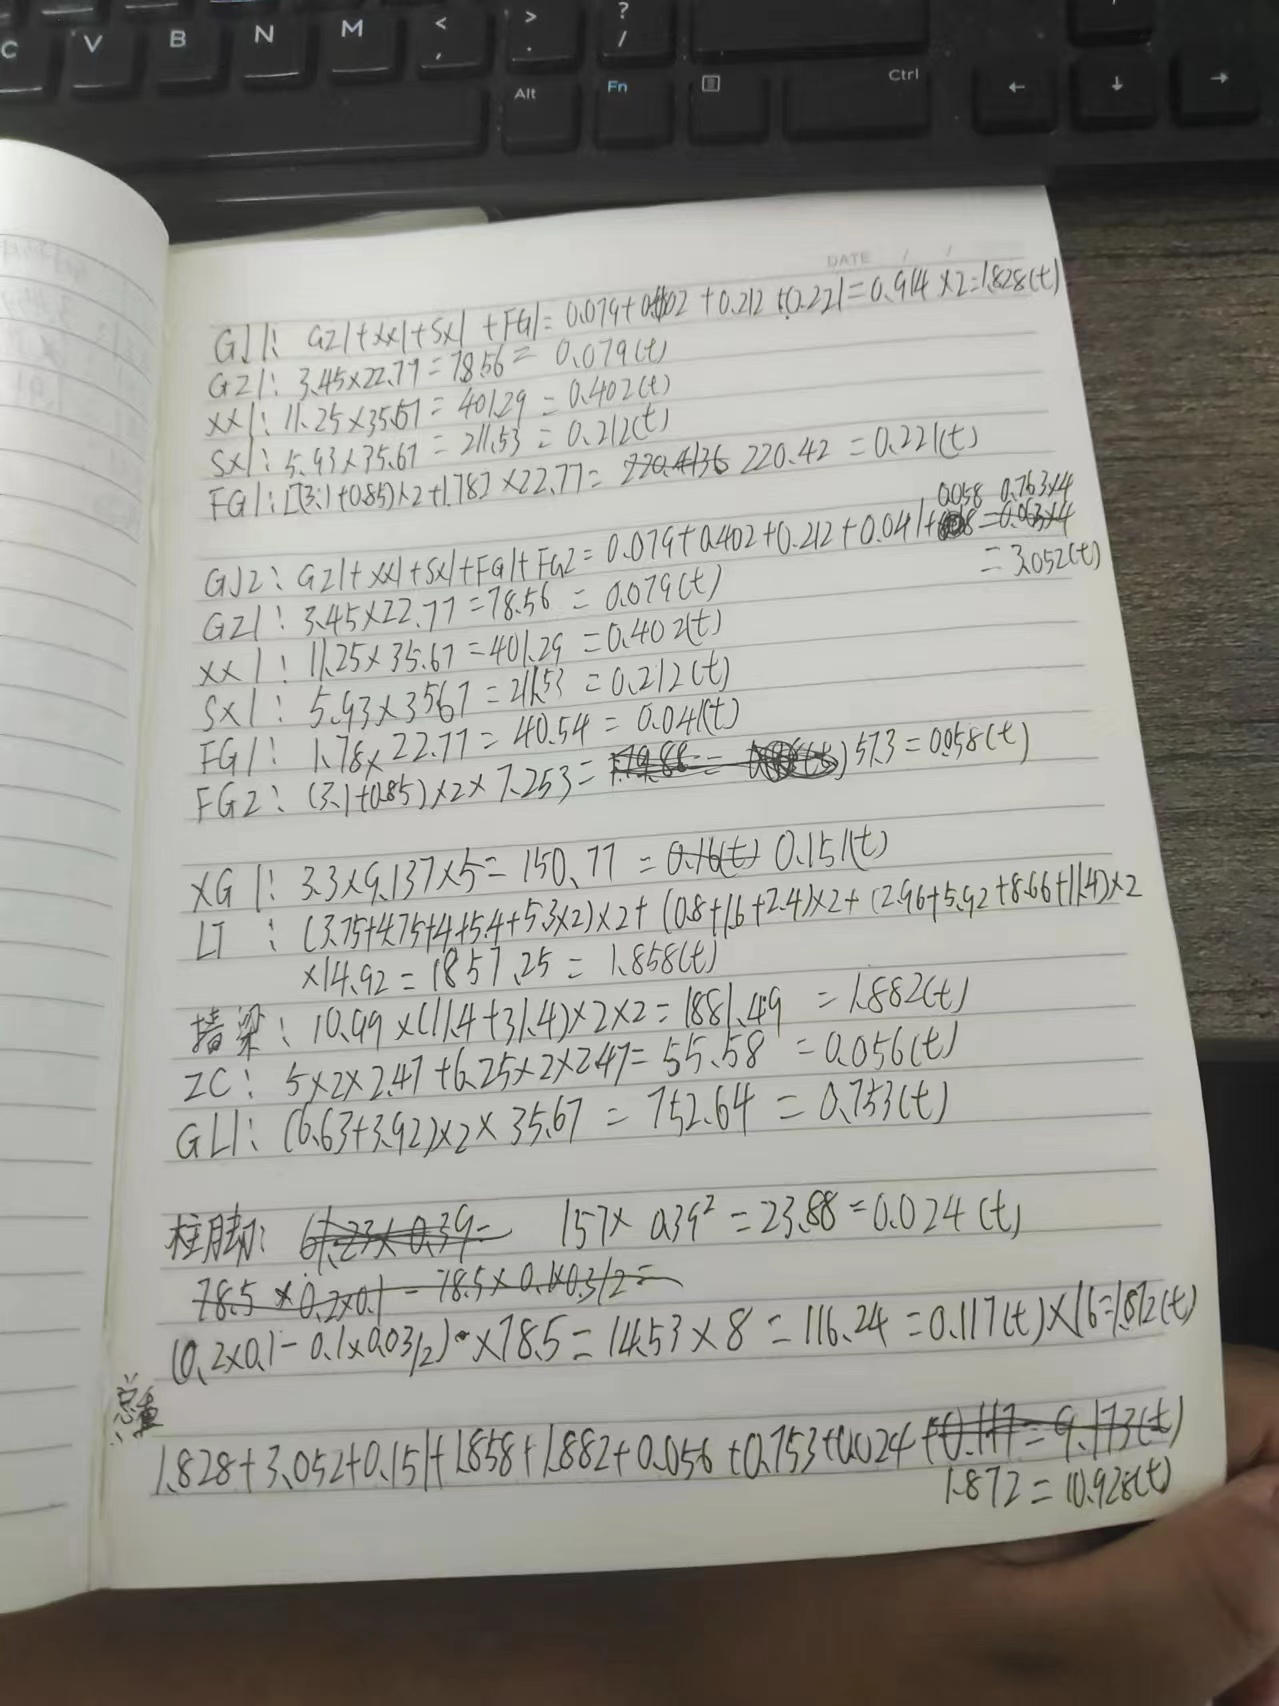 C V B N M < , > . ? /
Alt Fn Ctrl ← ↓ →
DATE / /
GJ1: GZ1+XX1+SX1+FG1=0.079+0.402+0.212+0.221=0.914×2=1.828(t)
GZ1: 3.45×22.77=78.56=0.079(t)
XX1: 11.25×35.67=401.29=0.402(t)
SX1: 5.93×35.67=211.53=0.212(t)
FG1: [(3.1+0.85)×2+1.78]×22.77= 220.4136 220.42=0.221(t)
0.058 0.763×4
GJ2: GZ1+XX1+SX1+FG1+FG2=0.079+0.402+0.212+0.041+ =0.063×4
=3.052(t)
GZ1: 3.45×22.77=78.56=0.079(t)
XX1: 11.25×35.67=401.29=0.402(t)
SX1: 5.93×3567=211.53=0.212(t)
FG1: 1.78×22.77=40.54=0.041(t)
FG2: (3.1+0.85)×2×7.253= 57.3=0.058(t)
XG1: 3.3×9.137×5=150.77=0.16(t) 0.151(t)
LT: (3.75+4.75+4+5.4+5.3×2)×2+(0.8+1.6+2.4)×2+(2.96+5.92+8.66+11.4)×2
×14.92=1857.25=1.858(t)
墙梁: 10.99×(11.4+31.4)×2×2=1881.49=1.882(t)
ZC: 5×2×2.47+6.25×2×2.47=55.58=0.056(t)
GL1: (6.63+3.92)×2×35.67=752.64=0.753(t)
柱脚: 61.23×0.39= 157×0.39²=23.88=0.024(t)
78.5×0.2×0.1-78.5×0.1×0.3/2=
(0.2×0.1-0.1×0.03/2)×78.5=14.53×8=116.24=0.117(t)×16=1.872(t)
总重
1.828+3.052+0.151+1.858+1.882+0.056+0.753+0.024+0.117=9.173(t)
1.872=10.928(t)